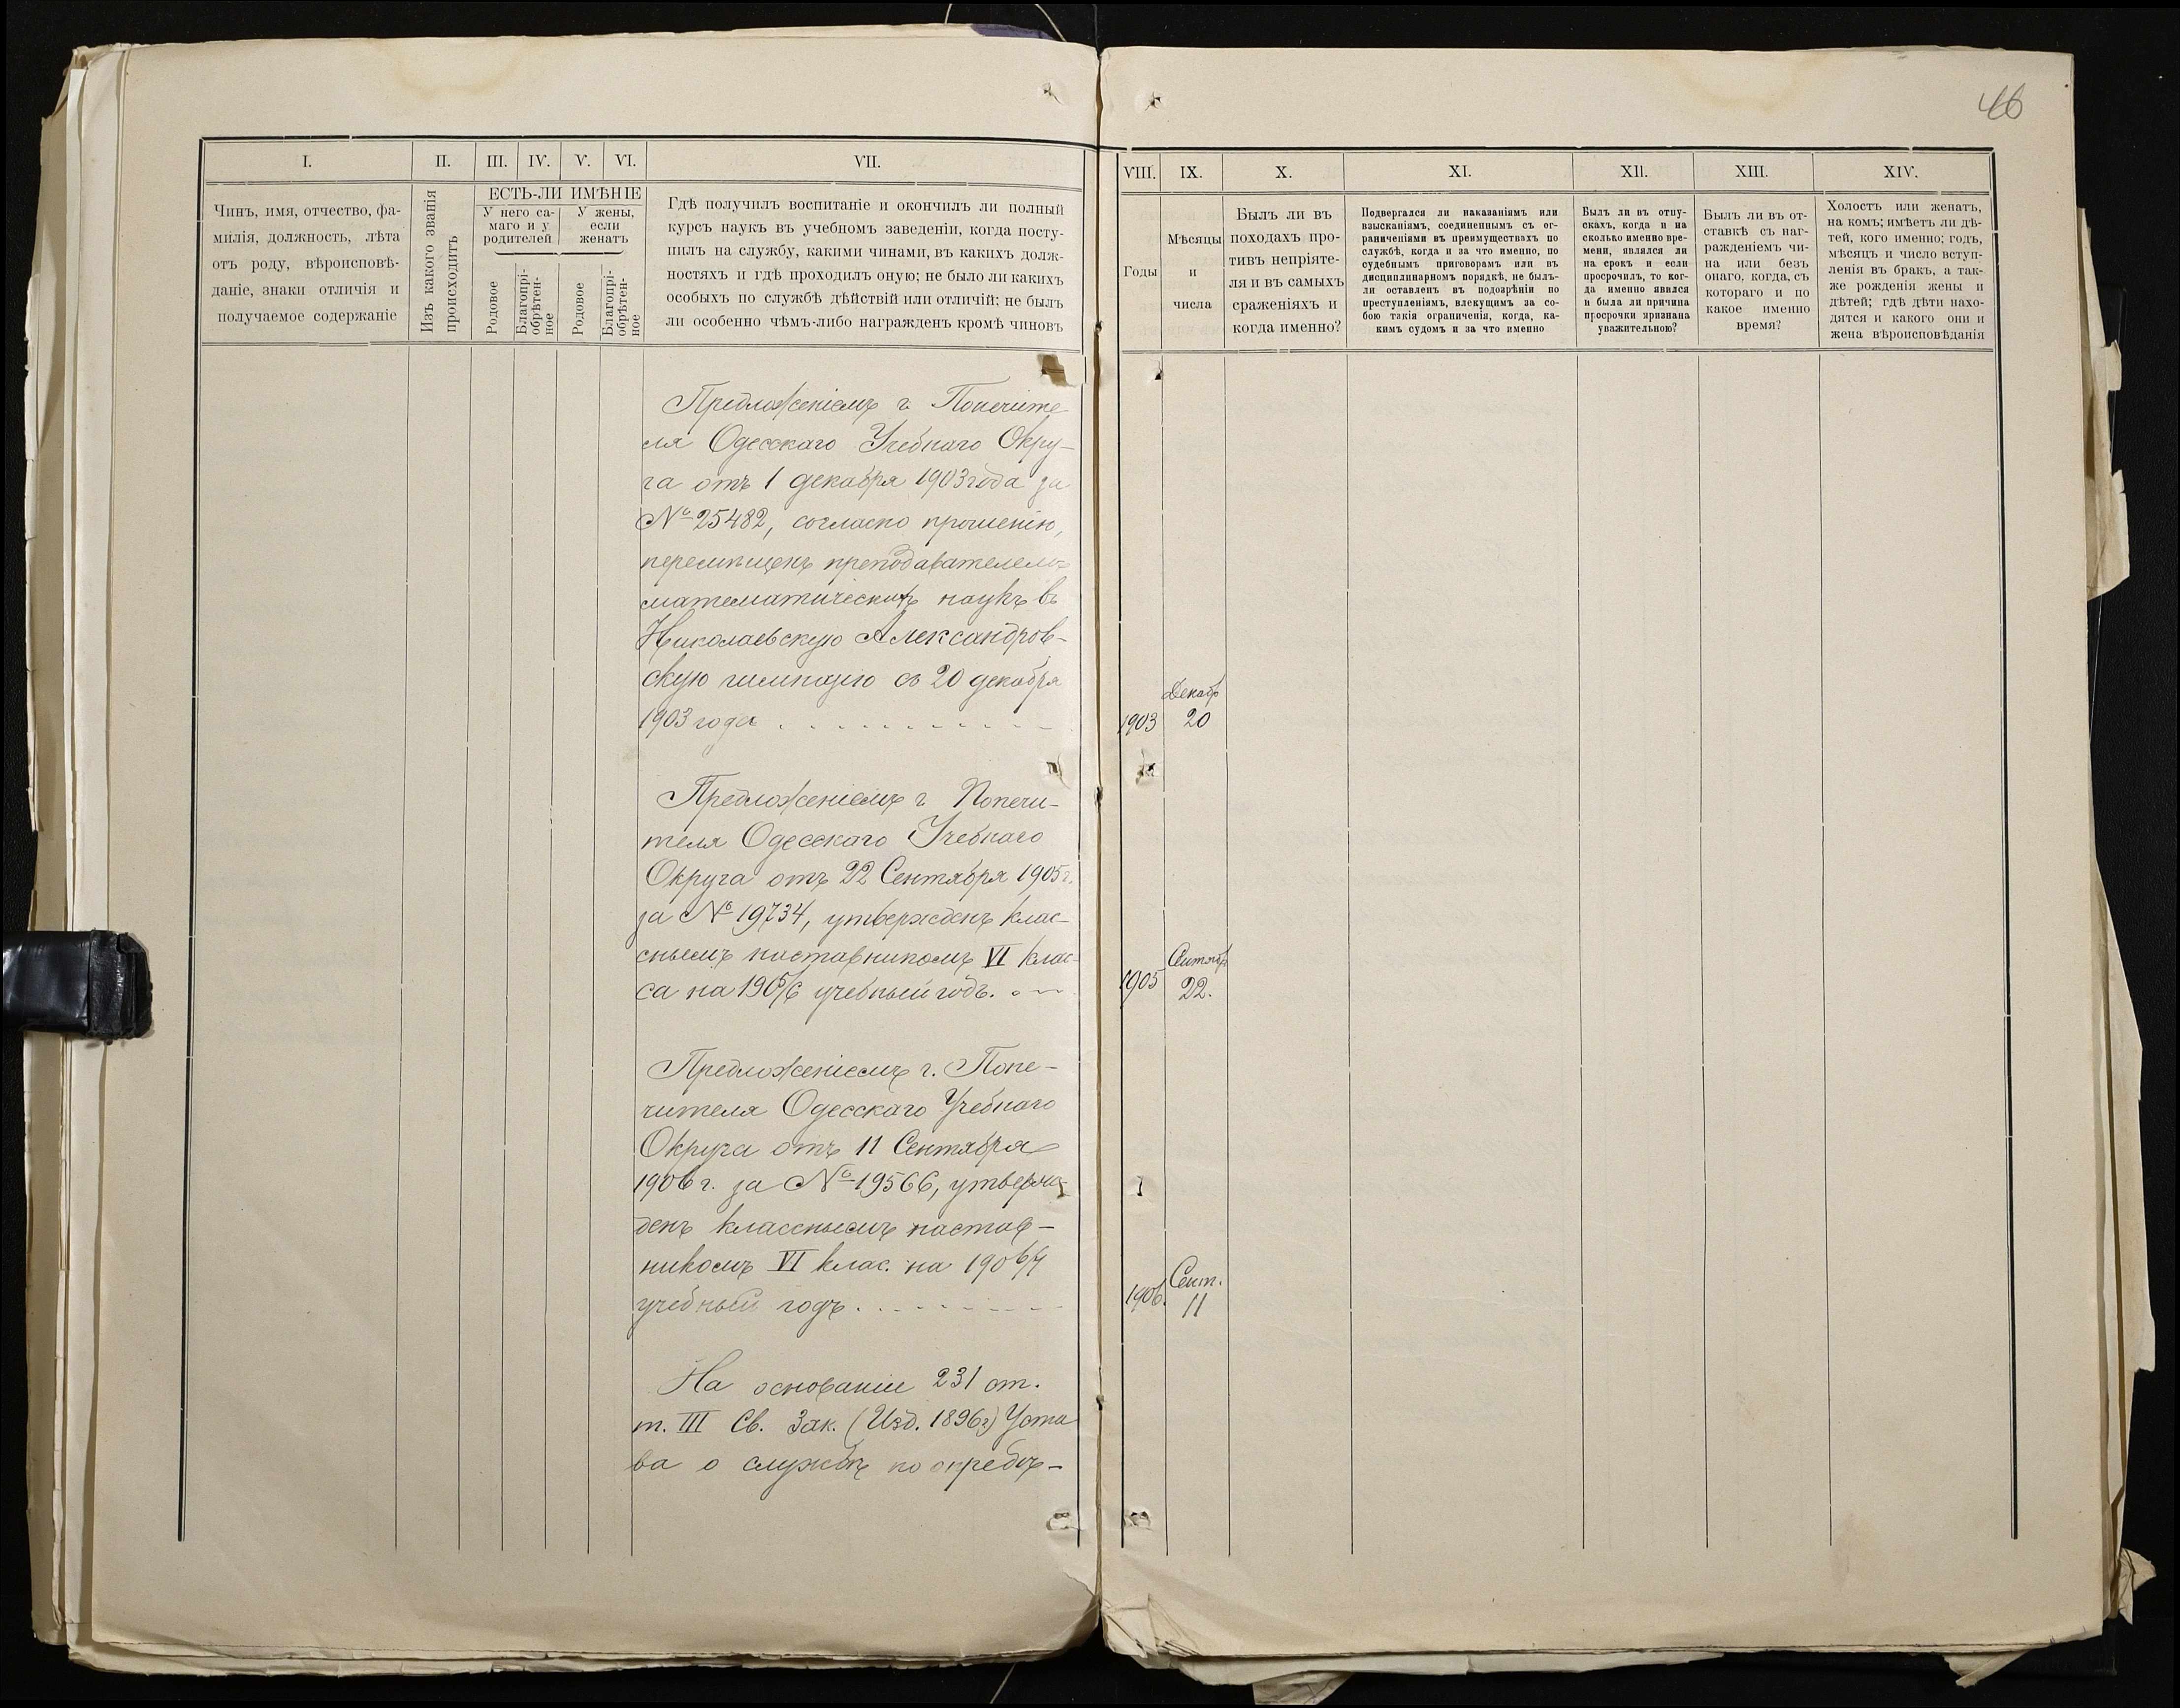 46
I.
II.
III.
IV.
V.
VI.
VII.
VIII.
IX.
X.
XI.
XII.
XIII.
XIV.
Чинъ, имя, отчество, фа-
милія, должность, лѣта
отъ роду, вѣроисповѣ-
даніе, знаки отличія и
получаемое содержаніе
Изъ какого званія
происходитъ
ЕСТЬ-ЛИ ИМѢНІЕ
У него са-
маго и у
родителей
У жены,
если
женатъ
Родовое
Благопрі-
обрѣтен-
ное
Родовое
Благопрі-
обрѣтен-
ное
Гдѣ получилъ воспитаніе и окончилъ ли полный
курсъ наукъ въ учебномъ заведеніи, когда посту-
пилъ на службу, какими чинами, въ какихъ долж-
ностяхъ и гдѣ проходилъ оную; не было ли какихъ
особыхъ по службѣ дѣйствій или отличій; не былъ
ли особенно чѣмъ-либо награжденъ кромѣ чиновъ
Годы
Мѣсяцы
и
числа
Былъ ли въ
походахъ про-
тивъ непріяте-
ля и въ самыхъ
сраженіяхъ и
когда именно?
Подвергался ли наказаніямъ или
взысканіямъ, соединеннымъ съ ог-
раниченіями въ преимуществахъ по
службѣ, когда и за что именно, по
судебнымъ приговорамъ или въ
дисциплинарномъ порядкѣ, не былъ-
ли оставленъ въ подозрѣніи по
преступленіямъ, влекущимъ за со-
бою такія ограниченія, когда, ка-
кимъ судомъ и за что именно
Былъ ли въ отпу-
скахъ, когда и на
сколько именно вре-
мени, являлся ли
на срокъ и если
просрочилъ, то ког-
да именно явился
и была ли причина
просрочки признана
уважительною?
Былъ ли въ от-
ставкѣ съ наг-
ражденіемъ чи-
на или безъ
онаго, когда, съ
котораго и по
какое именно
время?
Холостъ или женатъ,
на комъ; имѣетъ ли дѣ-
тей, кого именно; годъ,
мѣсяцъ и число вступ-
ленія въ бракъ, а так-
же рожденія жены и
дѣтей; гдѣ дѣти нахо-
дятся и какого они и
жена вѣроисповѣданія
Предложеніемъ г. Попечите-
ля Одесскаго Учебнаго Окру-
га отъ 1 декабря 1903 года за
№ 25482, согласно прошенію,
перемѣщенъ преподавателемъ
математическихъ наукъ въ
Николаевскую Александров-
скую гимназію съ 20 декабря
1903 года
1903
Декабр
20
Предложеніемъ г. Попечи-
теля Одесскаго Учебнаго
Округа отъ 22 Сентября 1905 г.
за № 19734, утвержденъ клас-
снымъ наставникомъ VI клас-
са на 1905/6 учебный годъ.
1905
Сентябр
22.
Предложеніемъ г. Попе-
чителя Одесскаго Учебнаго
Округа отъ 11 Сентября
1906 г. за № 19566, утверж-
денъ класснымъ настав-
никомъ VI клас. на 1906/7
учебный годъ.
1906.
Сент.
11
На основаніи 231 ст.
т. III Св. Зак. (Изд. 1896 г.) Уста
ва о службѣ по опредѣ-